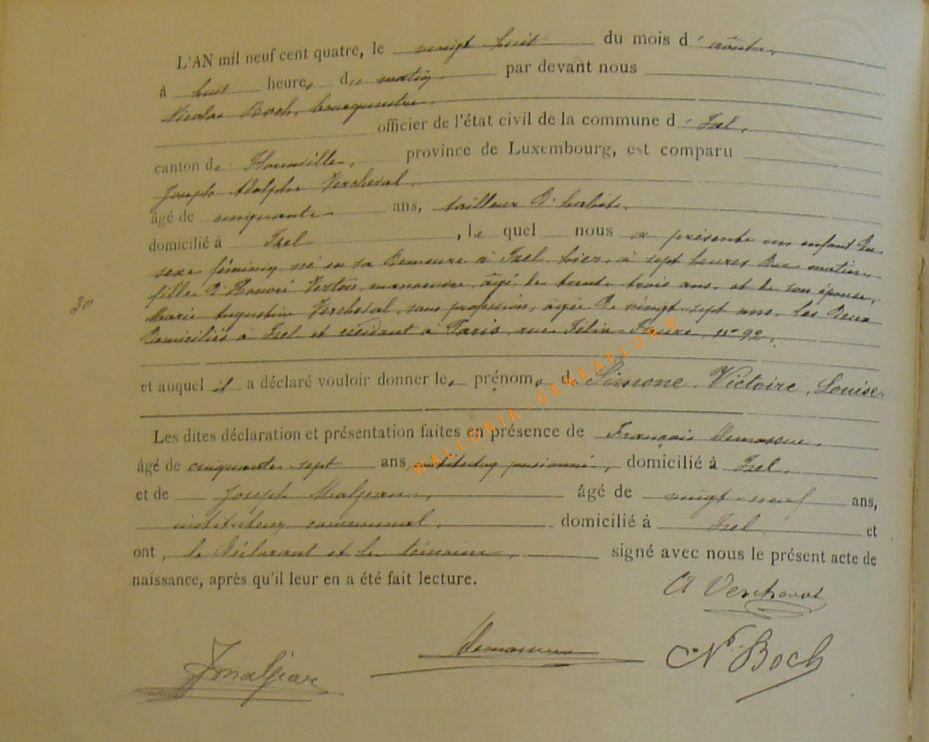 L'AN mil neuf cent quatre, le vingt huit du mois d'août,
à huit heures du matin par devant nous
Nicolas Boch, bourgmestre,
officier de l'état civil de la commune d'Izel,
canton de Florenville, province de Luxembourg, est comparu
Joseph Adolphe Vercheval,
âgé de cinquante ans, tailleur d'habits,
domicilié à Izel, le quel nous a présenté un enfant du
sexe féminin, né en sa demeure à Izel, hier, à sept heures du matin,
30
fille d'Honoré manoeuvre, âgé de trente trois ans, et de son épouse,
Marie Augustine Vercheval, sans profession, âgée de vingt-sept ans, les deux
domiciliés à Izel et résidant à Paris, rue Félix Faure, n° 92,
et auquel il a déclaré vouloir donner les prénoms de Simone, Victoire, Louise
Les dites déclaration et présentation faites en présence de François
âgé de cinquante sept ans instituteur pensionné, domicilié à Izel,
et de Joseph Malgear, âgé de vingt-neuf ans,
instituteur communal, domicilié à Izel et
ont, le déclarant et les témoins, signé avec nous le présent acte de
naissance, après qu'il leur en a été fait lecture.
A Vercheval
N. Boch
WALLONIA.GENEAFLOR®